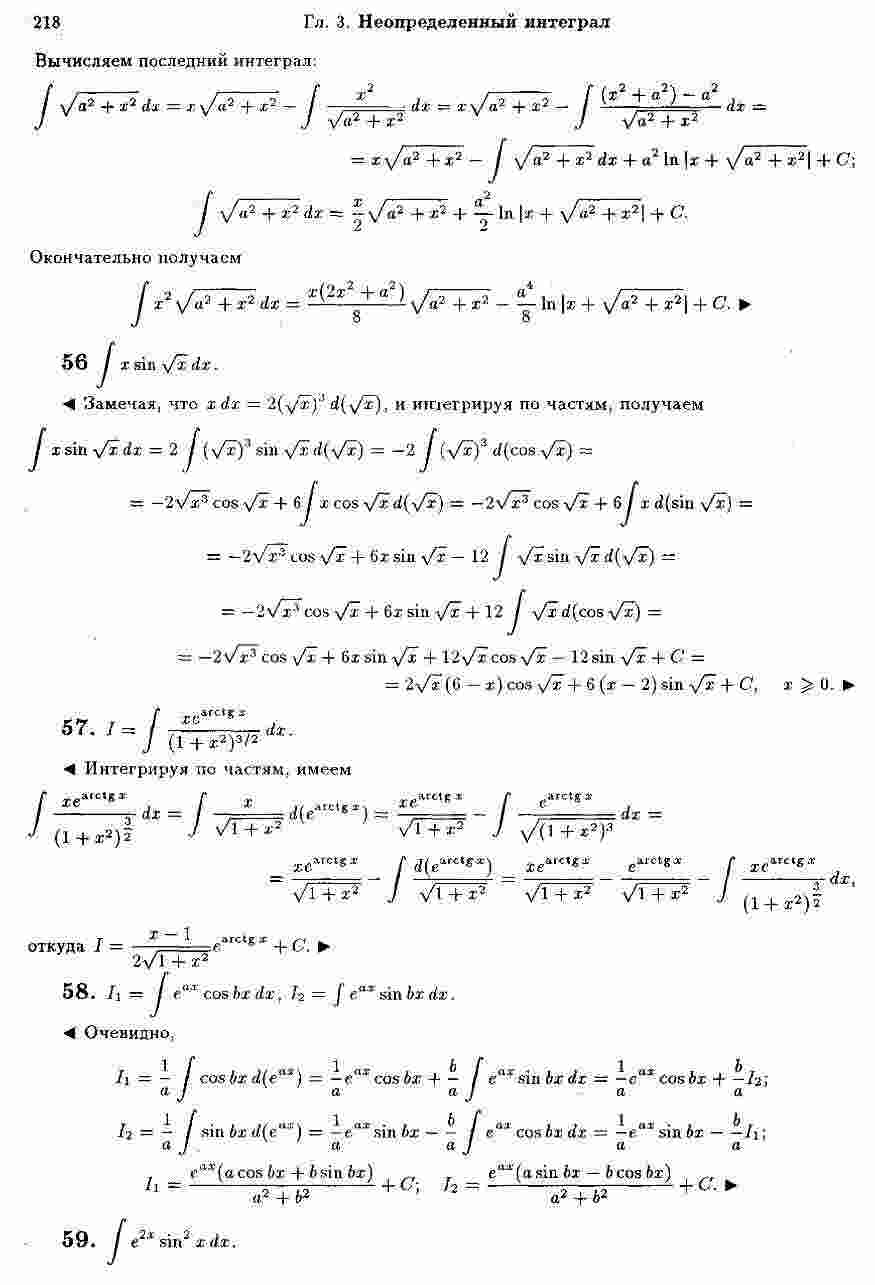 218 Гл. 3. Неопределенный интеграл
Вычисляем последний интеграл:
∫ √(a² + x²) dx = x√(a² + x²) − ∫ x²/√(a² + x²) dx = x√(a² + x²) − ∫ ((x² + a²) − a²)/√(a² + x²) dx =
= x√(a² + x²) − ∫ √(a² + x²) dx + a² ln |x + √(a² + x²)| + C;
∫ √(a² + x²) dx = x/2 √(a² + x²) + a²/2 ln |x + √(a² + x²)| + C.
Окончательно получаем
∫ x² √(a² + x²) dx = x(2x² + a²)/8 √(a² + x²) − a⁴/8 ln |x + √(a² + x²)| + C. ▶
56 ∫ x sin √x dx.
◀ Замечая, что x dx = 2(√x)³ d(√x), и интегрируя по частям, получаем
∫ x sin √x dx = 2 ∫ (√x)³ sin √x d(√x) = −2 ∫ (√x)³ d(cos √x) =
= −2√x³ cos √x + 6 ∫ x cos √x d(√x) = −2√x³ cos √x + 6 ∫ x d(sin √x) =
= −2√x³ cos √x + 6x sin √x − 12 ∫ √x sin √x d(√x) =
= −2√x³ cos √x + 6x sin √x + 12 ∫ √x d(cos √x) =
= −2√x³ cos √x + 6x sin √x + 12√x cos √x − 12 sin √x + C =
= 2√x (6 − x) cos √x + 6 (x − 2) sin √x + C, x ⩾ 0. ▶
57. I = ∫ xe^(arctg x)/(1 + x²)^(3/2) dx.
◀ Интегрируя по частям, имеем
∫ xe^(arctg x)/(1 + x²)^(3/2) dx = ∫ x/√(1 + x²) d(e^(arctg x)) = xe^(arctg x)/√(1 + x²) − ∫ e^(arctg x)/√((1 + x²)³) dx =
= xe^(arctg x)/√(1 + x²) − ∫ d(e^(arctg x))/√(1 + x²) = xe^(arctg x)/√(1 + x²) − e^(arctg x)/√(1 + x²) − ∫ xe^(arctg x)/(1 + x²)^(3/2) dx,
откуда I = (x − 1)/(2√(1 + x²)) e^(arctg x) + C. ▶
58. I₁ = ∫ e^(ax) cos bx dx, I₂ = ∫ e^(ax) sin bx dx.
◀ Очевидно,
I₁ = 1/a ∫ cos bx d(e^(ax)) = 1/a e^(ax) cos bx + b/a ∫ e^(ax) sin bx dx = 1/a e^(ax) cos bx + b/a I₂;
I₂ = 1/a ∫ sin bx d(e^(ax)) = 1/a e^(ax) sin bx − b/a ∫ e^(ax) cos bx dx = 1/a e^(ax) sin bx − b/a I₁;
I₁ = e^(ax)(a cos bx + b sin bx)/(a² + b²) + C; I₂ = e^(ax)(a sin bx − b cos bx)/(a² + b²) + C. ▶
59. ∫ e^(2x) sin² x dx.